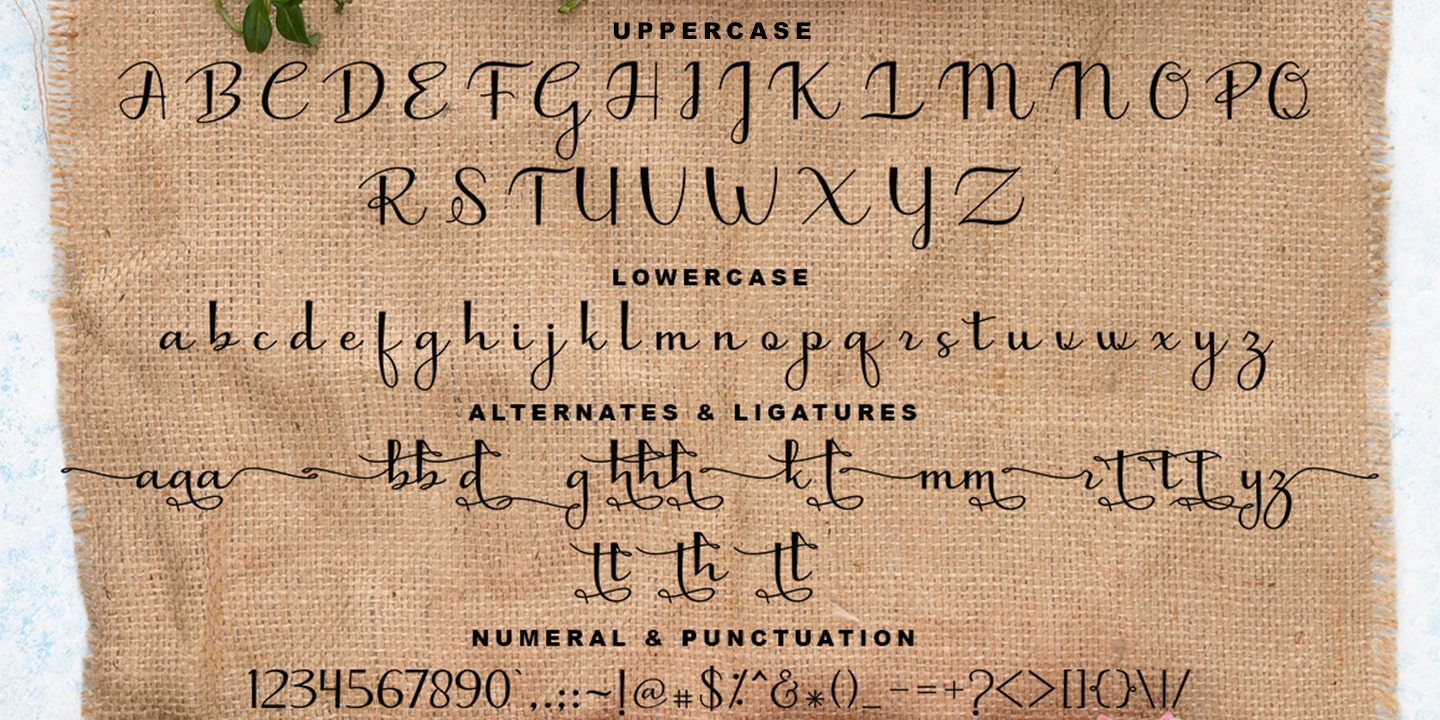 UPPERCASE
A B C D E F G H I J K L M N O P Q
R S T U V W X Y Z
LOWERCASE
a b c d e f g h i j k l m n o p q r s t u v w x y z
ALTERNATES & LIGATURES
aqa bb d g hhh k t mm r t t t y z
tt th tt
NUMERAL & PUNCTUATION
1234567890`,.;:~!@#$%^&*()_-=+?<>[]{}\|/